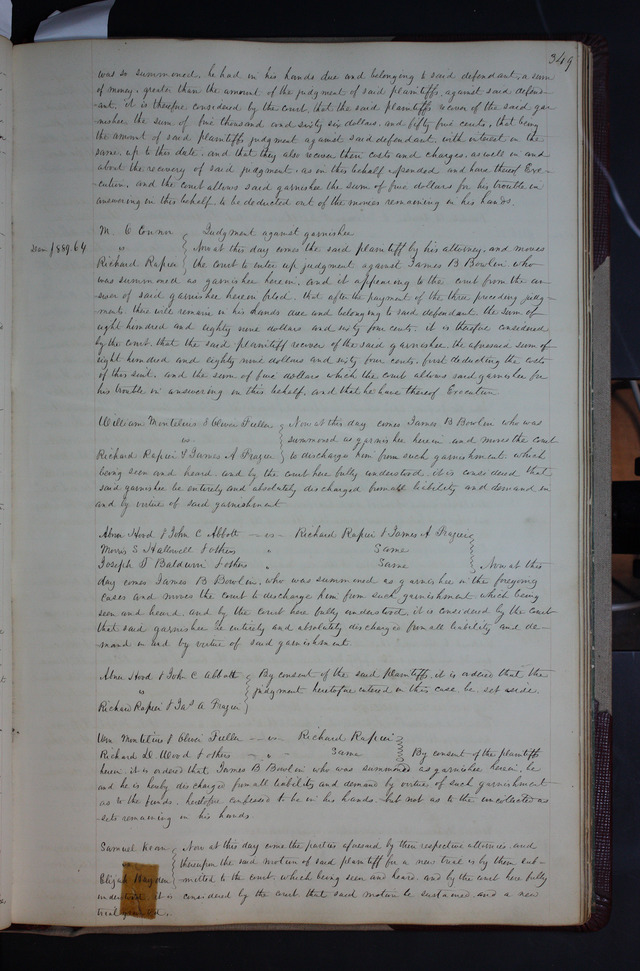 349
was so summoned, he had in his hands due and belonging to said defendant, a sum
of money, greater than the amount of the judgment of said plaintiffs, against said defend-
-ant. it is therefore considered by the court that the said plaintiffs recover of the said gar-
nishee the sum of five thousand and sixty six dollars, and fifty five cents, that being
the amount of said plaintiffs judgment against said defendant, with interest on the
same, up to this date, and that they also recover their costs and charges, as well in and
about the recovery of said judgment, as in this behalf expended and have thereof Exe-
-cution, and the court allows said garnishee the sum of five dollars for his trouble in
answering in this behalf, to be deducted out of the monies remaining in his hands.
M. O Connor Judgment against garnishee
889.64 " Now at this day comes the said plaintiff by his attorney, and moves
Richard Rapier the court to enter up judgment against James B Bowlin who
was summoned as garnishee herein, and it appearing to the court from the an-
swer of said garnishee herein filed, that after the payment of the three preceding judg-
ments, there will remain in his hands due and belonging to said defendant the sum of
eight hundred and eighty nine dollars and sixty four cents, it is therefore considered
by the court, that the said plaintiff recover of the said garnishee, the aforesaid sum of
eight hundred and eighty nine dollars and sixty four cents, first deducting the costs
of this suit, and the sum of five dollars which the court allows said garnishee for
his trouble in answering in this behalf, and that he have thereof Execution
William Montelius & Oliver Fuller Now at this day comes James B Bowlin who was
vs. summoned as garnishee herein and moves the court
Richard Rapier & James A Frazier to discharge him from such garnishment, which
being seen and heard, and by the court here fully understood, it is considered that
said garnishee be entirely and absolutely discharged from all liability and demand in
and by virtue of said garnishment
Abner Hood & John C Abbott — vs — Richard Rapier & James A Frazier
Morris S Hallowell & others " Same
Joseph T Baldwin & others " Same Now at this
day comes James B Bowlin, who was summoned as garnishee in the foregoing
cases and moves the court to discharge him from such garnishment which being
seen and heard, and by the court here fully understood, it is considered by the court
that said garnishee be entirely and absolutely discharged from all liability and de-
-mand in and by virtue of said garnishment.
Abner Hood & John C Abbott By consent of the said Plaintiffs, it is ordered that the
vs judgment heretofore entered in this case, be, set aside.
Richard Rapier & Jas A Frazier
Wm Montelius & Oliver Fuller — vs — Richard Rapier
Richard D Wood & others — " — Same By consent of the plaintiffs
herein, it is ordered that James B Bowlin who was summoned as garnishee herein, be
and he is hereby discharged from all liability and demand by virtue of such garnishment
as to the funds, heretofore confessed to be in his hands, but not as to the uncollected as-
sets remaining in his hands.
Samuel Now at this day come the parties aforesaid by their respective attornies, and
thereupon the said motion of said plaintiff for a new trial is by them sub-
Elijah Hayden mitted to the court, which being seen and heard and by the court here fully
understood it is considered by the court that said motion be sustained and a new
trial granted.